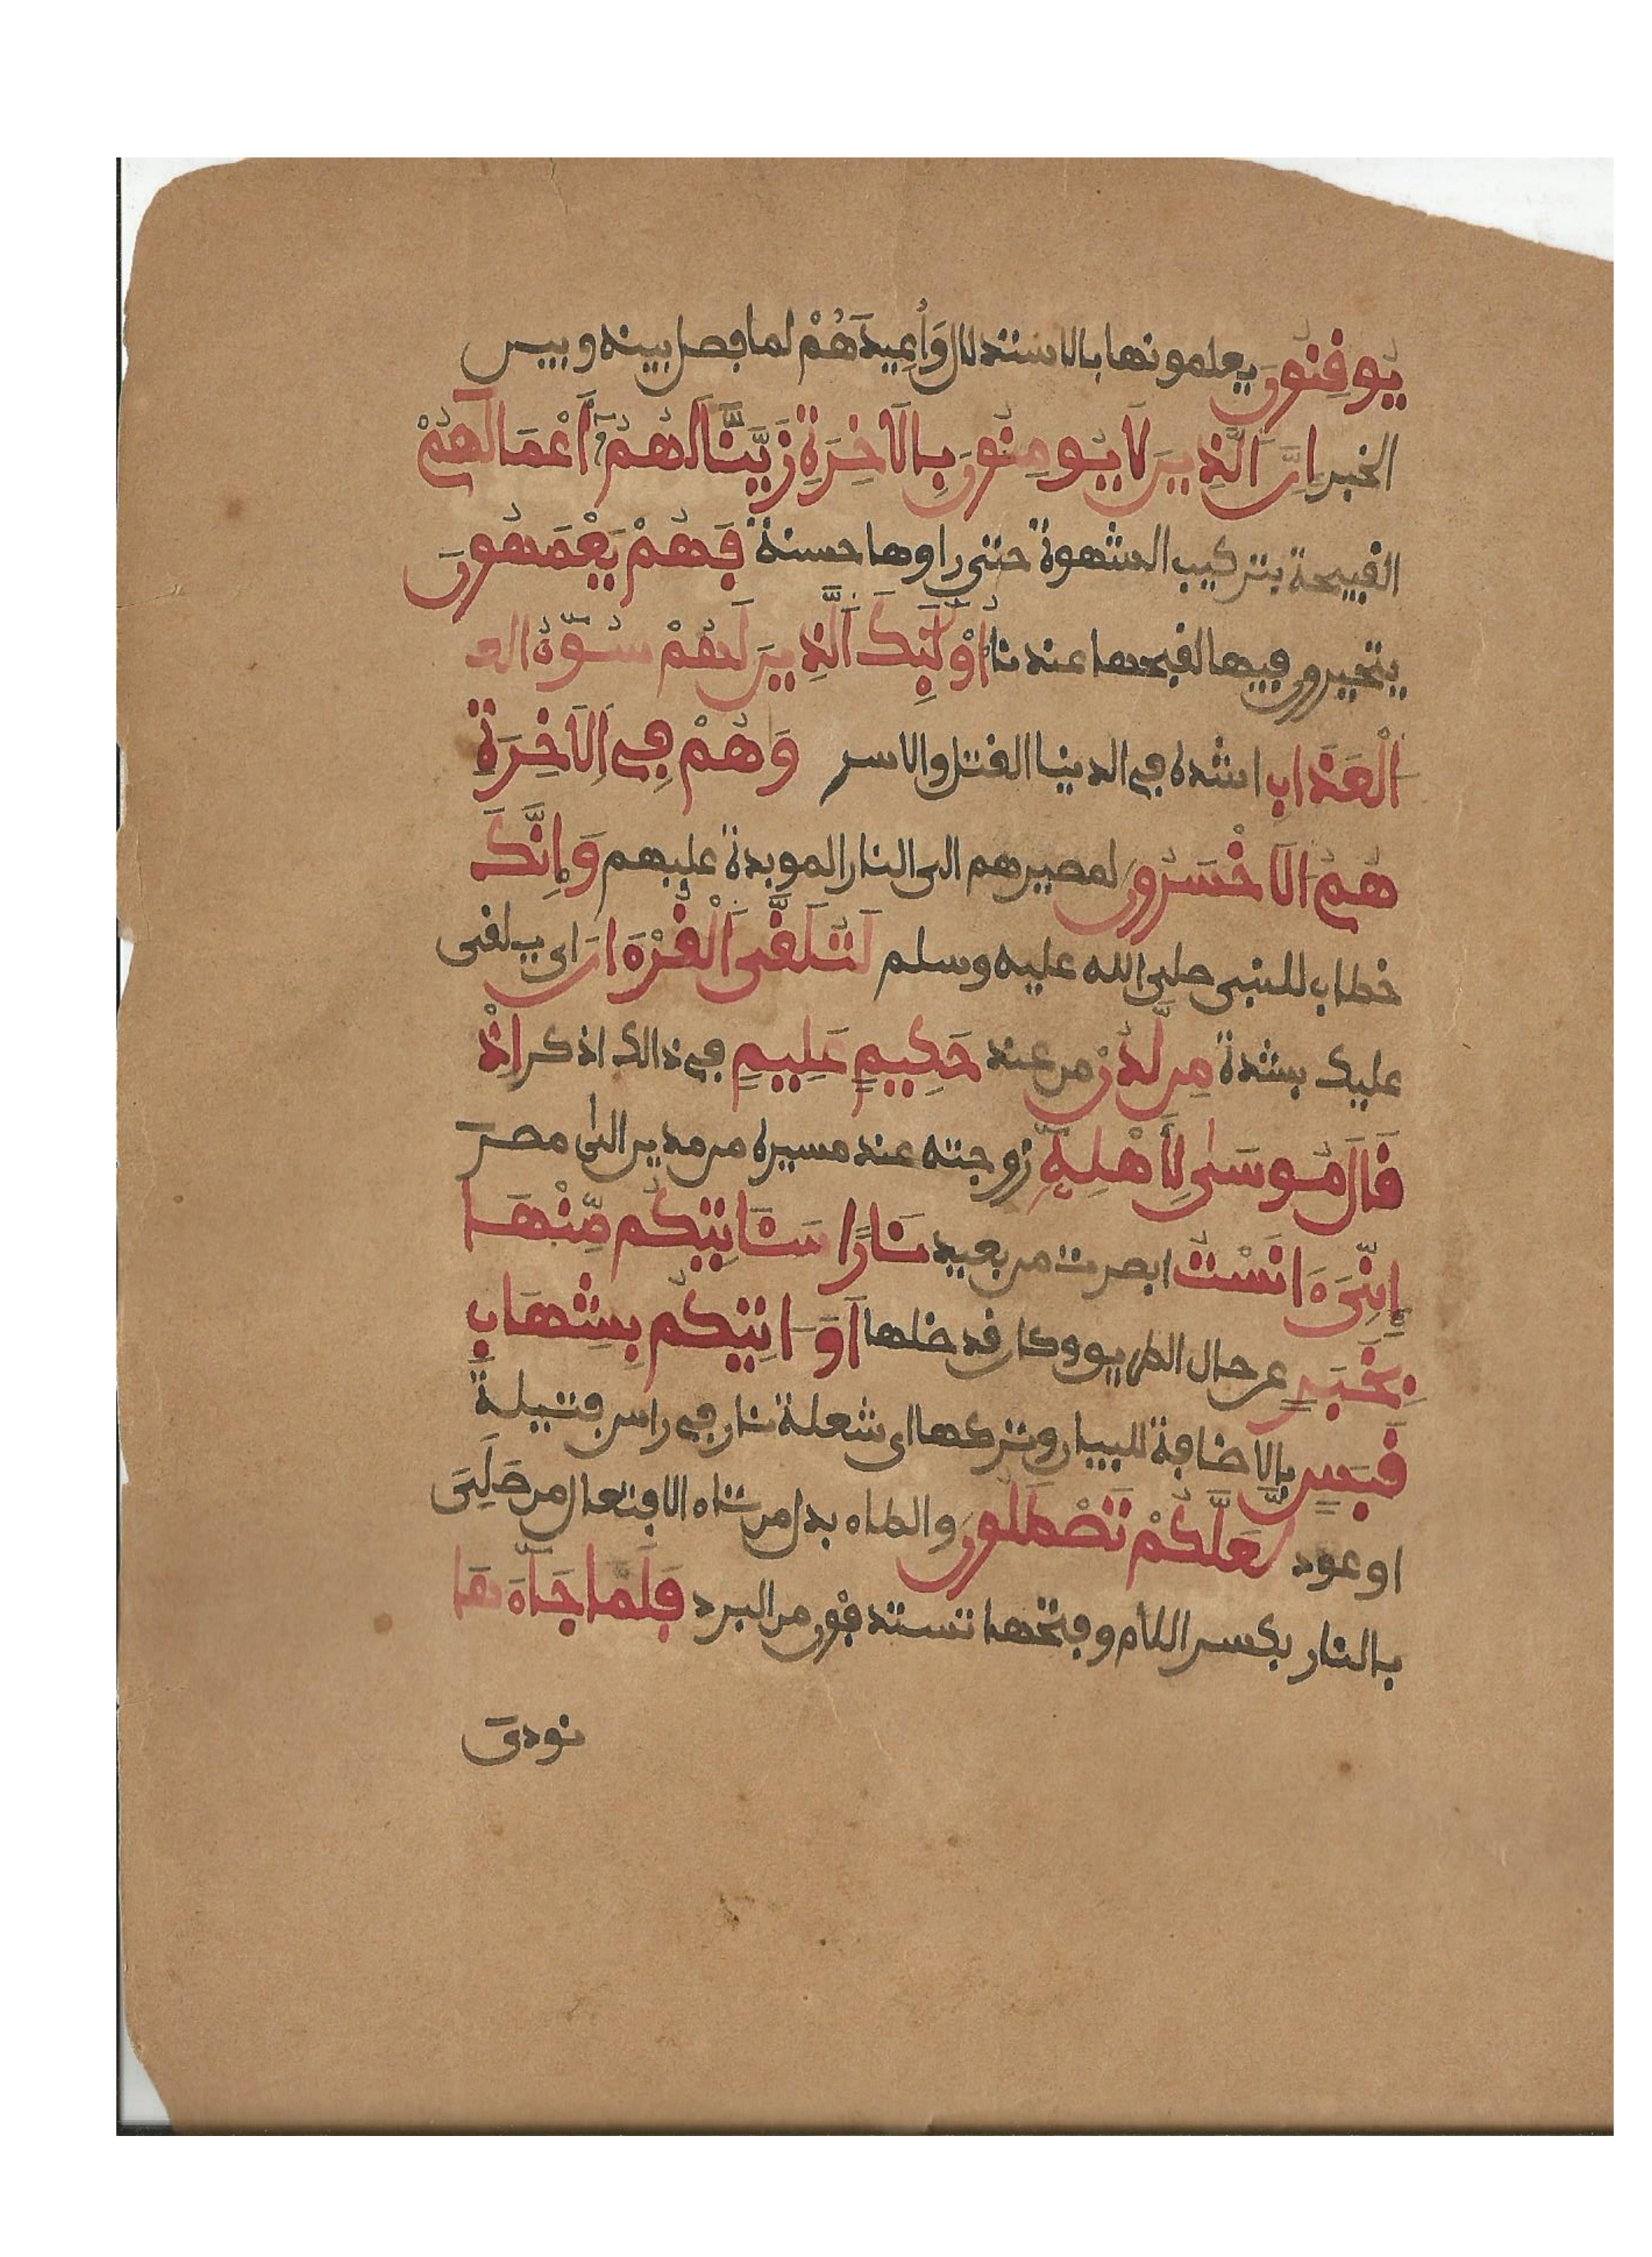 يُوفِنُونَ يعلمونها بالاستدلال وَأُعِيدَ هُمْ لما فصل بينه وبين
الخبر اِنَّ اَلذِينَ لَا يُومِنُونَ بِالَاخِرَةِ زَيَّنَّا لَهُمُۥٓ أَعْمَالَهُمْ
القبيحة بتركيب الشهوة حتى راوها حسنة فَهُمْ يَعْمَهُونَ
يتحيرون فيها لقبحها عندنا أُوْلَٰٓئِكَ اَلَّذِينَ لَهُمْ سُوٓءُ الع
اَلْعَذَابِ اشده في الدنيا القتل والاسر وَهُمْ فِي اِلَاخِرَةِ
هُمُ الَاخْسَرُونَ لمصيرهم الى النار الموبدة عليهم وَإِنَّكَ
خطاب للنبي صلى الله عليه وسلم لَتُلَقَّى اَلْقُرْءَانَ اي يلقى
عليك بشدة مِن لَّدُنْ من عند حَكِيمٍ عَلِيمٍ في ذالك اذكر اِذْ
قَالَ مُوسَىٰ لِأَهْلِهِۦٓ زوجته عند مسيره من مدين الى مصر
إِنِّيَ ءَانَسْتُ ابصرت من بعيد نَارًا سَـَٔاتِيكُم مِّنْهَا
بِخَبَرٍ عن حال الطريق وكان قد ضلها أَوَ اتِيكُم بِشِهَابِ
قَبَسٍ بالاضافة للبيان وتركها اي شعلة نار في راس فتيلة
او عود لَّعَلَّكُمْ تَصْطَلُونَ والطاء بدل من تاء الافتعال من صَلِيَ
بالنار بكسر اللام وفتحها تستدفون من البرد فَلَمَّا جَآءَهَا
نودي